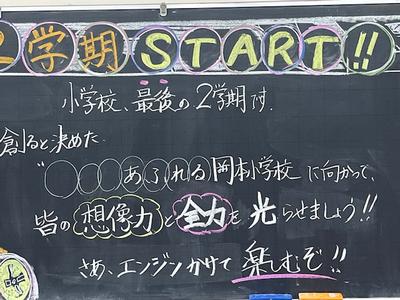 2学期START!!
小学校、最後の2学期です.
創ると決めた
"○○○○あふれる岡本小学校に向かって、
皆の想像力と全力を光らせましょう!!
さあ、エンジンかけて楽しむぞ!!